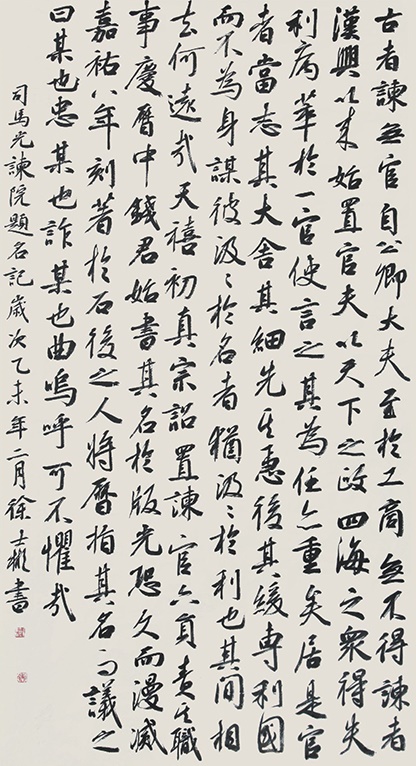 古者諫無官自公卿大夫至於工商無不得諫者
漢興以來始置官夫以天下之政四海之眾得失
利病萃於一官使言之其為任亦重矣居是官
者當志其大舍其細先其急後其緩專利國
而不為身謀彼汲〻於名者猶汲〻於利也其間相
去何遠哉天禧初真宗詔置諫官六員責其職
事慶曆中錢君始書其名於版光恐久而漫滅
嘉祐八年刻著於石後之人將曆指其名而議之
曰某也忠某也詐某也曲嗚呼可不懼哉
司馬光諫院題名記歲次乙未年二月徐士彬書